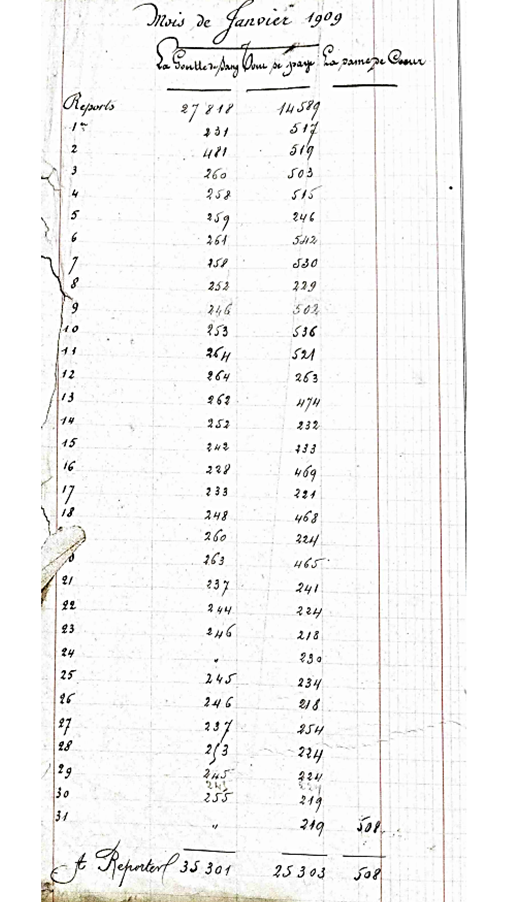 Mois de Janvier 1909
La Goutte de Sang Tout se paye La Dame de Coeur
Reports 27818 14589
1er 231 517
2 481 519
3 260 503
4 258 515
5 259 246
6 261 542
7 258 530
8 252 229
9 246 502
10 253 536
11 264 521
12 264 263
13 262 474
14 252 232
15 242 233
16 228 469
17 233 221
18 248 468
260 224
0 263 465
21 237 241
22 244 224
23 246 218
24 " 230
25 245 234
26 246 218
27 237 254
28 253 224
29 245 224
30 255 219
31 " 219 508
A Reporter 35301 25303 508